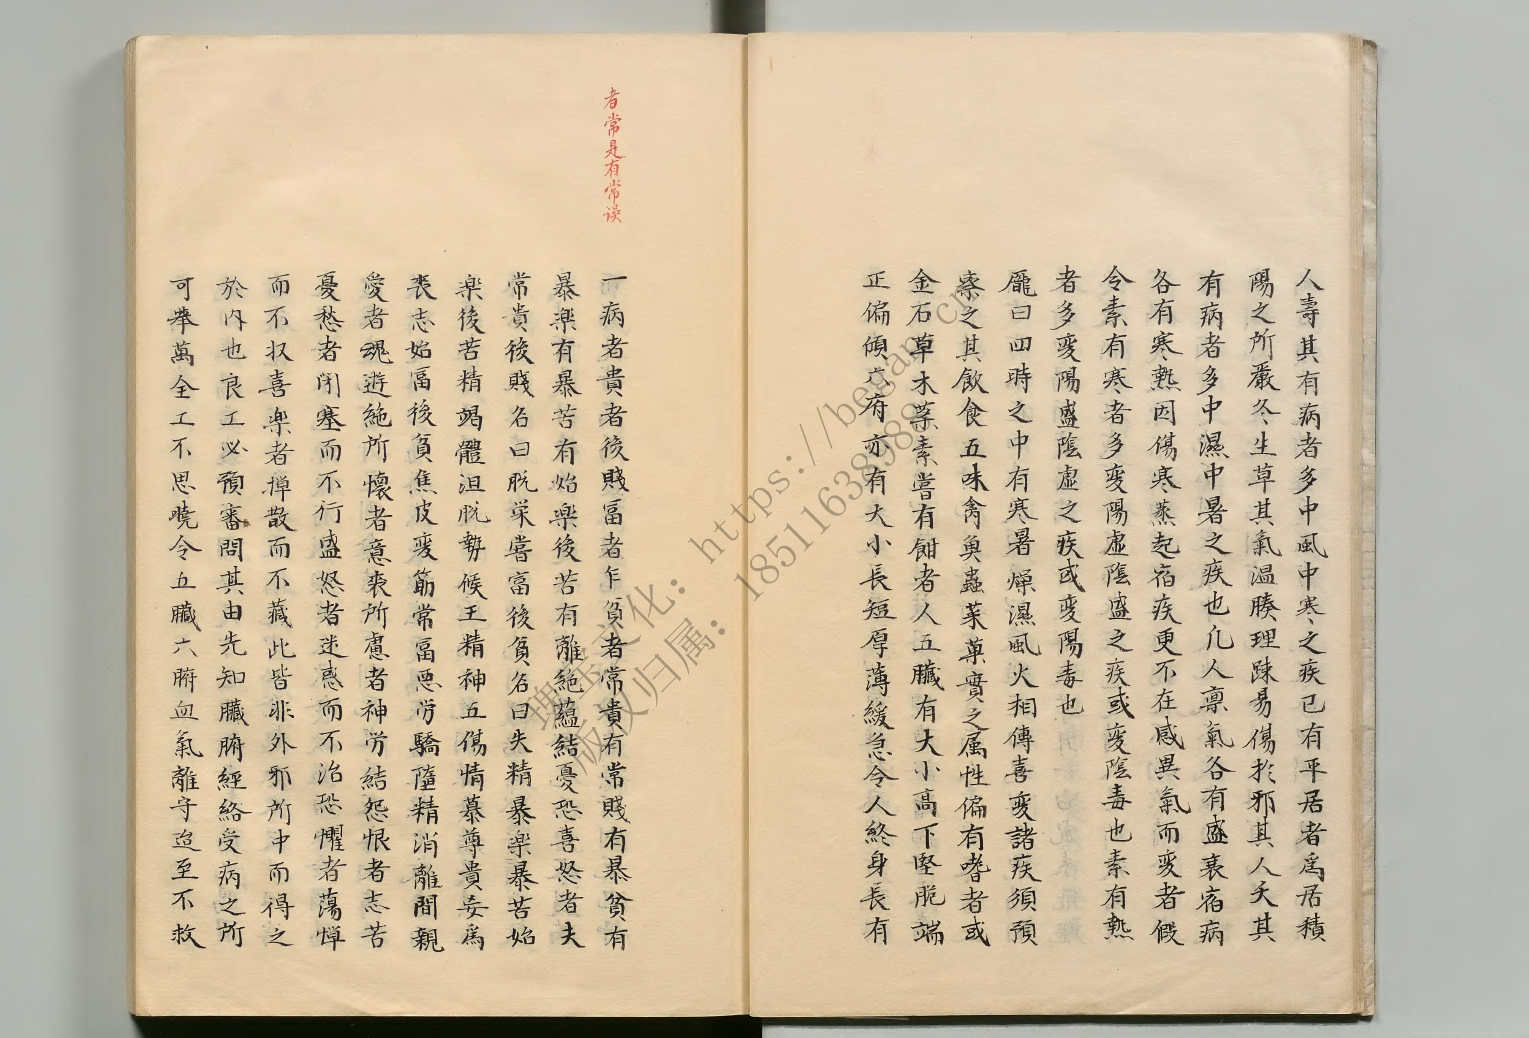 人壽其有病者多中風中寒之疾已有平居者爲居積
陽之所嚴冬生草其氣温腠理踈易傷扵邪其人夭其
有病者多中濕中暑之疾也凢人禀氣各有盛衰宿病
各有寒熱因傷寒蒸起宿疾更不在感異氣而変者假
令素有寒者多変陽虚陰盛之疾或変陰毒也素有熱
者多変陽盛陰虚之疾或変陽毒也
龎曰四時之中有寒暑燥濕風火相傳喜変諸疾須預
察之其飲食五味禽奐蟲菜菓實之属性偏有嗜者或
金石草木藥素嘗有餌者人五臓有大小高下堅脆端
正偏傾六府亦有大小長短厚薄緩急令人終身長有
者常是有常误
一病者貴者後賤富者乍貧者常貴有常賤有暴貧有
暴楽有暴苦有始楽後苦有離絶藴結憂恐喜怒者夫
常貴後賤名曰脱栄嘗富後貧名曰失精暴楽暴苦始
楽後苦精竭體沮脱勢候王精神五傷情慕尊貴妄爲
喪志始富後貧焦皮変筋常富悪労驕墮精消離間親
愛者魂遊絶所懐者意喪所慮者神労結怨恨者志苦
憂愁者閉塞而不行盛怒者迷惑而不治恐懼者蕩憚
而不収喜楽者掸散而不藏此皆非外邪所中而得之
於内也良工必預審問其由先知臓腑經絡受病之所
可举萬全工不思曉令五臓六腑血氣離守迨至不救
理玉文化：https://began.cn
版权归属：18511638988